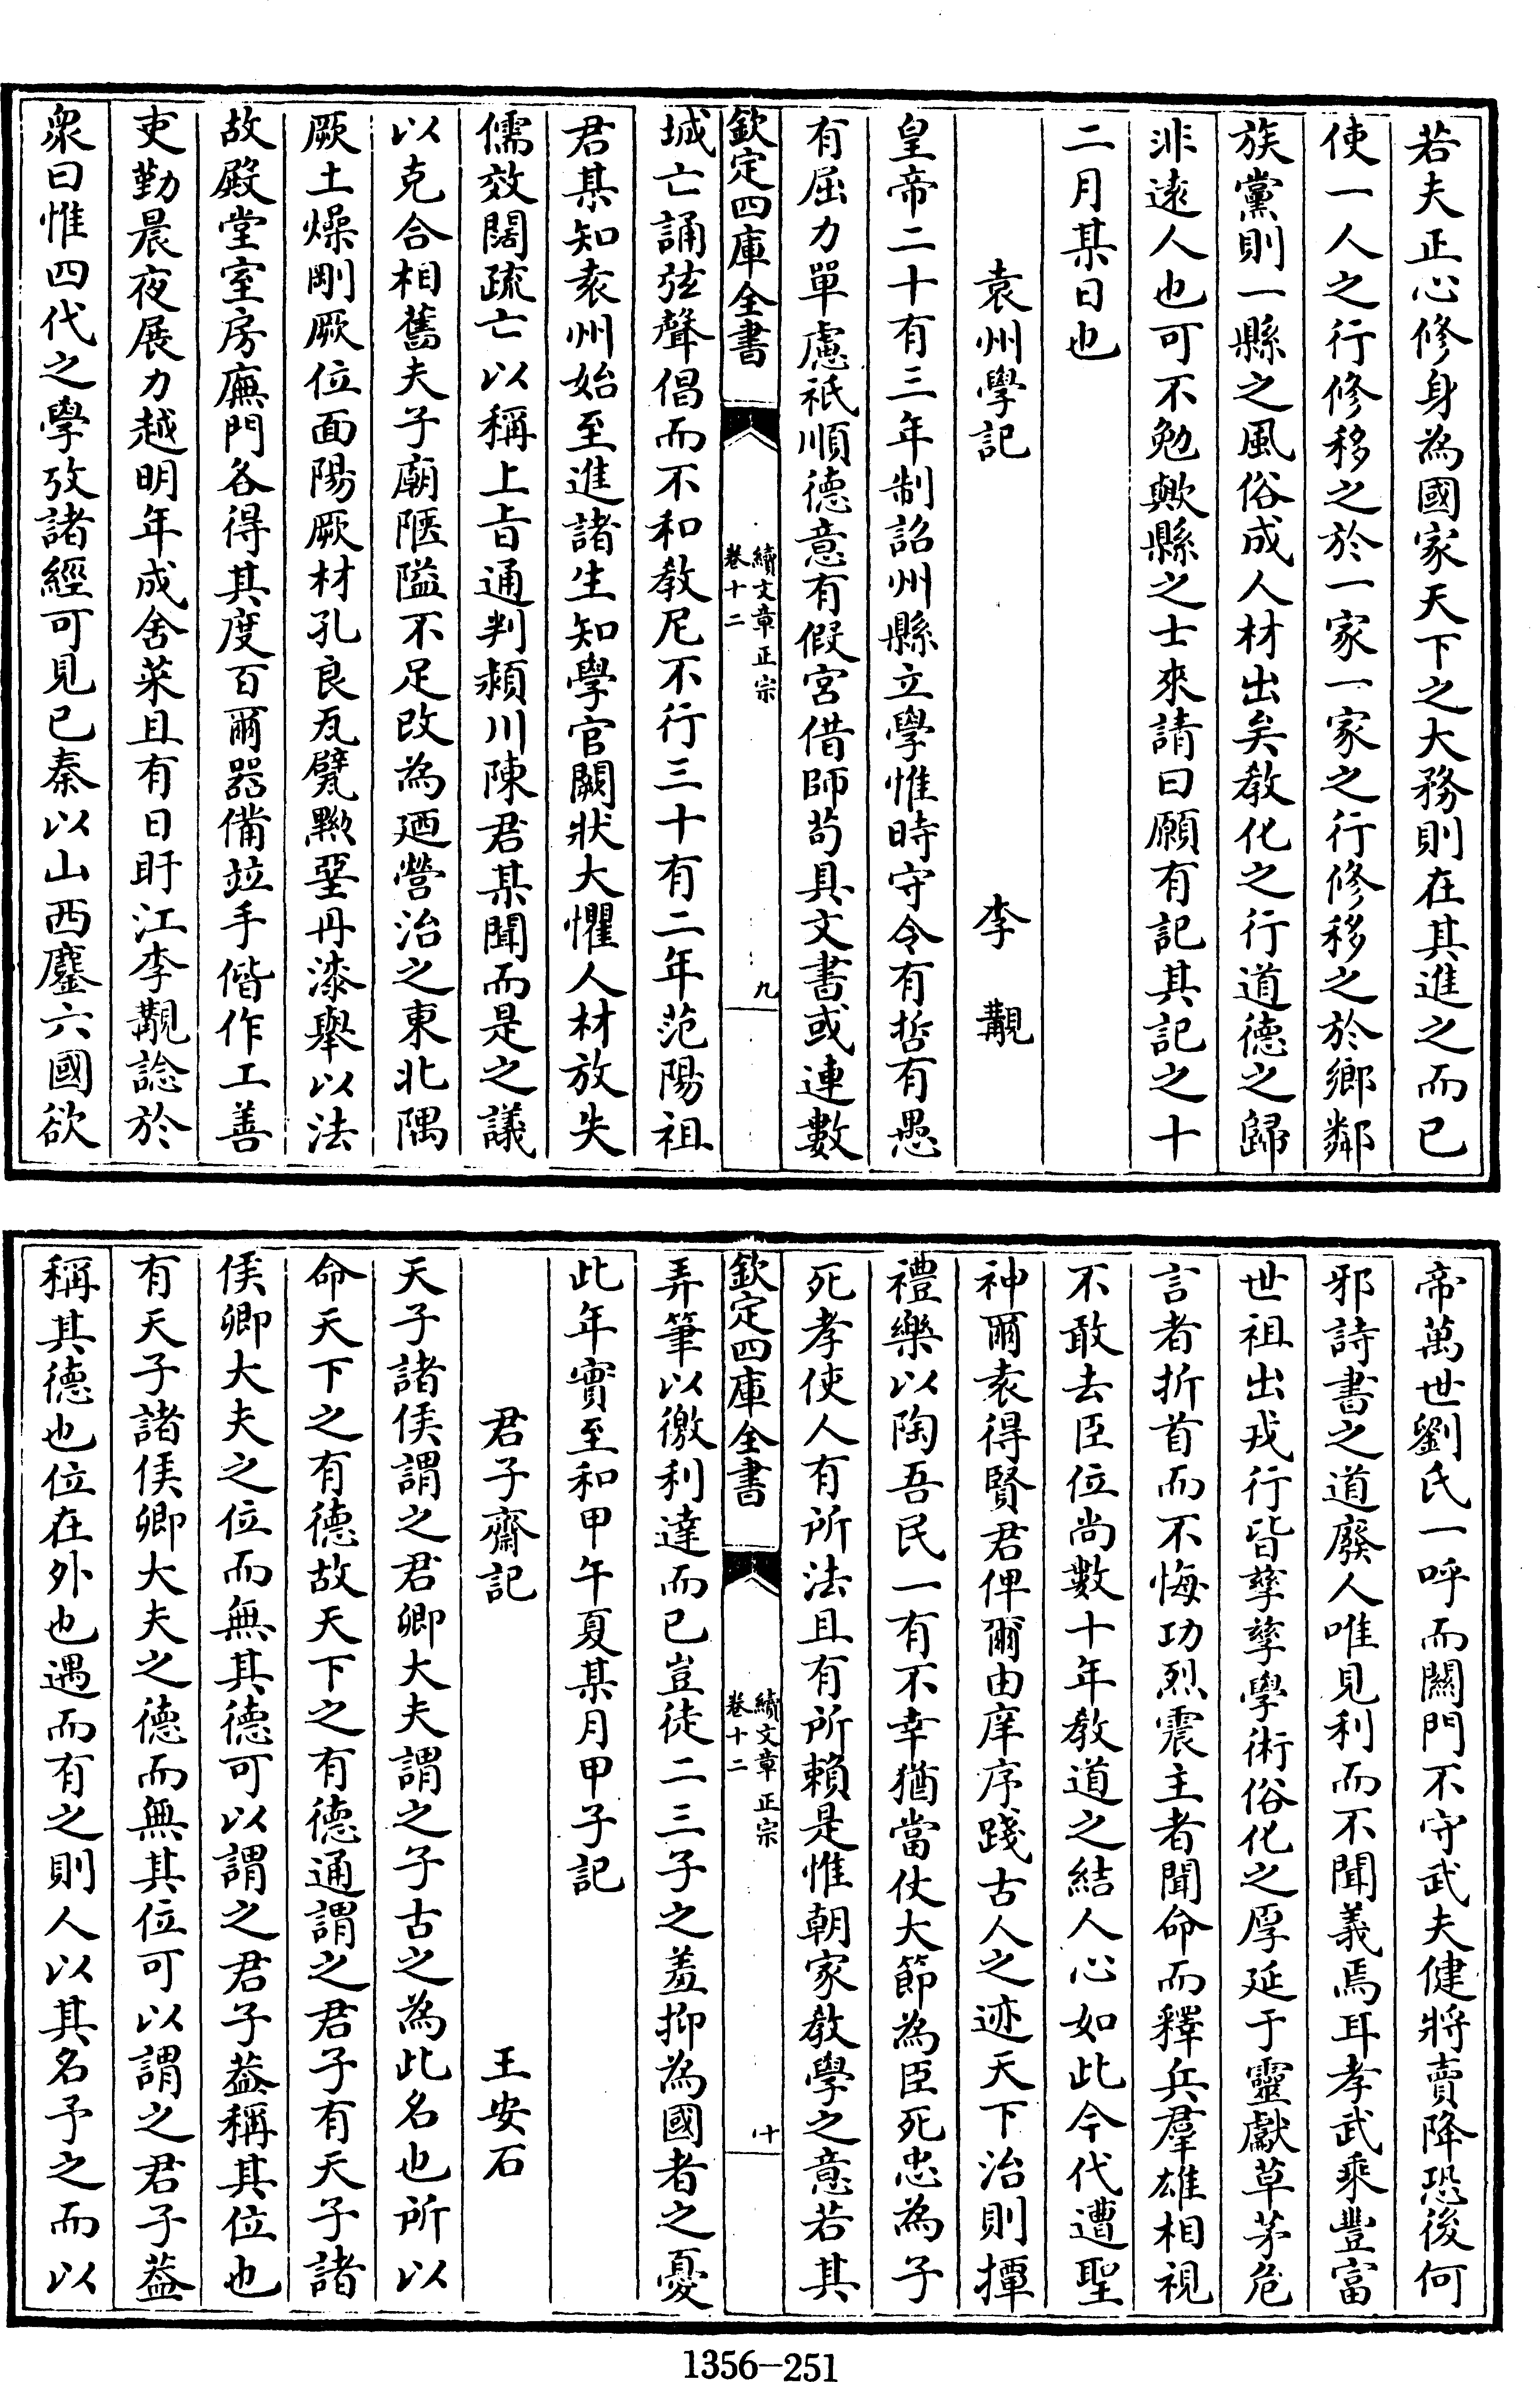 若夫正心修身為國家天下之大務則在其進之而已
使一人之行修移之於一家一家之行修移之於鄉鄰
族黨則一縣之風俗成人材出矣教化之行道德之歸
非遠人也可不勉歟縣之士來請曰願有記其記之十
二月某日也
袁州學記　李覯
皇帝二十有三年制詔州縣立學惟時守令有哲有愚
有屈力單慮祇順德意有假宮借師茍具文書或連數
欽定四庫全書　續文章正宗卷十二　九
城亡誦弦聲倡而不和教尼不行三十有二年范陽祖
君某知袁州始至進諸生知學官闕狀大懼人材放失
儒效闊疏亡以稱上旨通判潁川陳君某聞而是之議
以克合相舊夫子廟陿隘不足改為廼營治之東北隅
厥土燥剛厥位面陽厥材孔良瓦甓黝堊丹漆舉以法
故殿堂室房廡門各得其度百爾器備竝手偕作工善
吏勤晨夜展力越明年成舍菜且有日盱江李覯諗於
眾曰惟四代之學攷諸經可見已秦以山西鏖六國欲
帝萬世劉氏一呼而關門不守武夫健將賣降恐後何
邪詩書之道廢人唯見利而不聞義焉耳孝武乘豐富
世祖出戎行皆孳孳學術俗化之厚延于靈獻草茅危
言者折首而不悔功烈震主者聞命而釋兵羣雄相視
不敢去臣位尚數十年教道之結人心如此今代遭聖
神爾袁得賢君俾爾由庠序踐古人之迹天下治則撢
禮樂以陶吾民一有不幸猶當仗大節為臣死忠為子
死孝使人有所法且有所賴是惟朝家教學之意若其
欽定四庫全書　續文章正宗卷十二　十
弄筆以徼利達而已豈徒二三子之羞抑為國者之憂
此年實至和甲午夏某月甲子記
君子齋記　王安石
天子諸侯謂之君卿大夫謂之子古之為此名也所以
命天下之有德故天下之有德通謂之君子有天子諸
侯卿大夫之位而無其德可以謂之君子葢稱其位也
有天子諸侯卿大夫之德而無其位可以謂之君子葢
稱其德也位在外也遇而有之則人以其名予之而以
1356-251